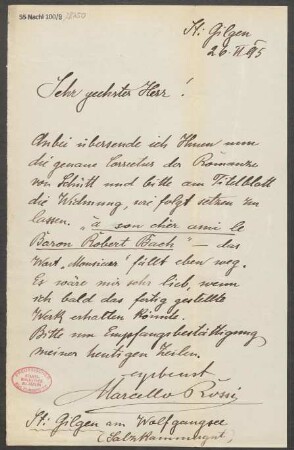 55 Nachl 100/B
St: Gilgen
26.VI.95
Sehr geehrter Herr!
Anbei übersende ich Ihnen nun
die genaue Correctur der Romanze
von Schütt und bitte am Titelblatt
die Widmung, wie folgt setzen zu
lassen. „à son cher ami le
Baron Robert Bach" – das
Wort „Monsieur" fällt eben weg.
Es wäre mir sehr lieb, wenn
ich bald das fertig gestellte
Werk erhalten könnte.
Bitte um Empfangsbestättigung
meiner heutigen Zeilen.
ergebenst
Marcello Rossi
St: Gilgen am Wolfgangsee
(Salzkammergut)